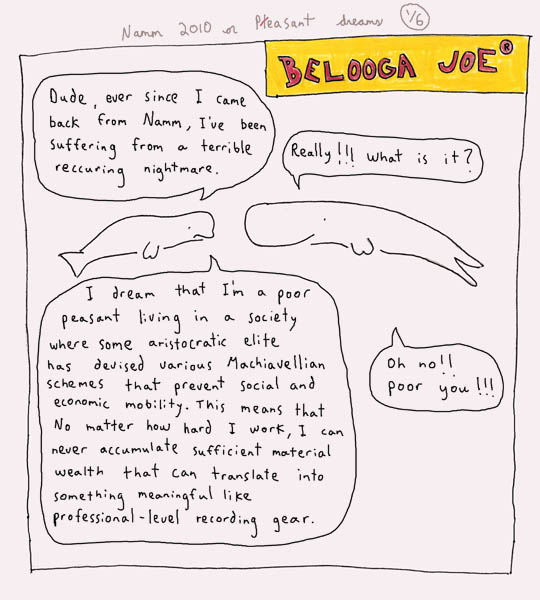 Namm 2010 or Peasant dreams 1/6
BELOOGA JOE®
Dude, ever since I came
back from Namm, I've been
suffering from a terrible
reccuring nightmare.
Really!!! What is it?
I dream that I'm a poor
peasant living in a society
where some aristocratic elite
has devised various Machiavellian
schemes that prevent social and
economic mobility. This means that
No matter how hard I work, I can
never accumulate sufficient material
wealth that can translate into
something meaningful like
professional-level recording gear.
Oh no!!
poor you!!!